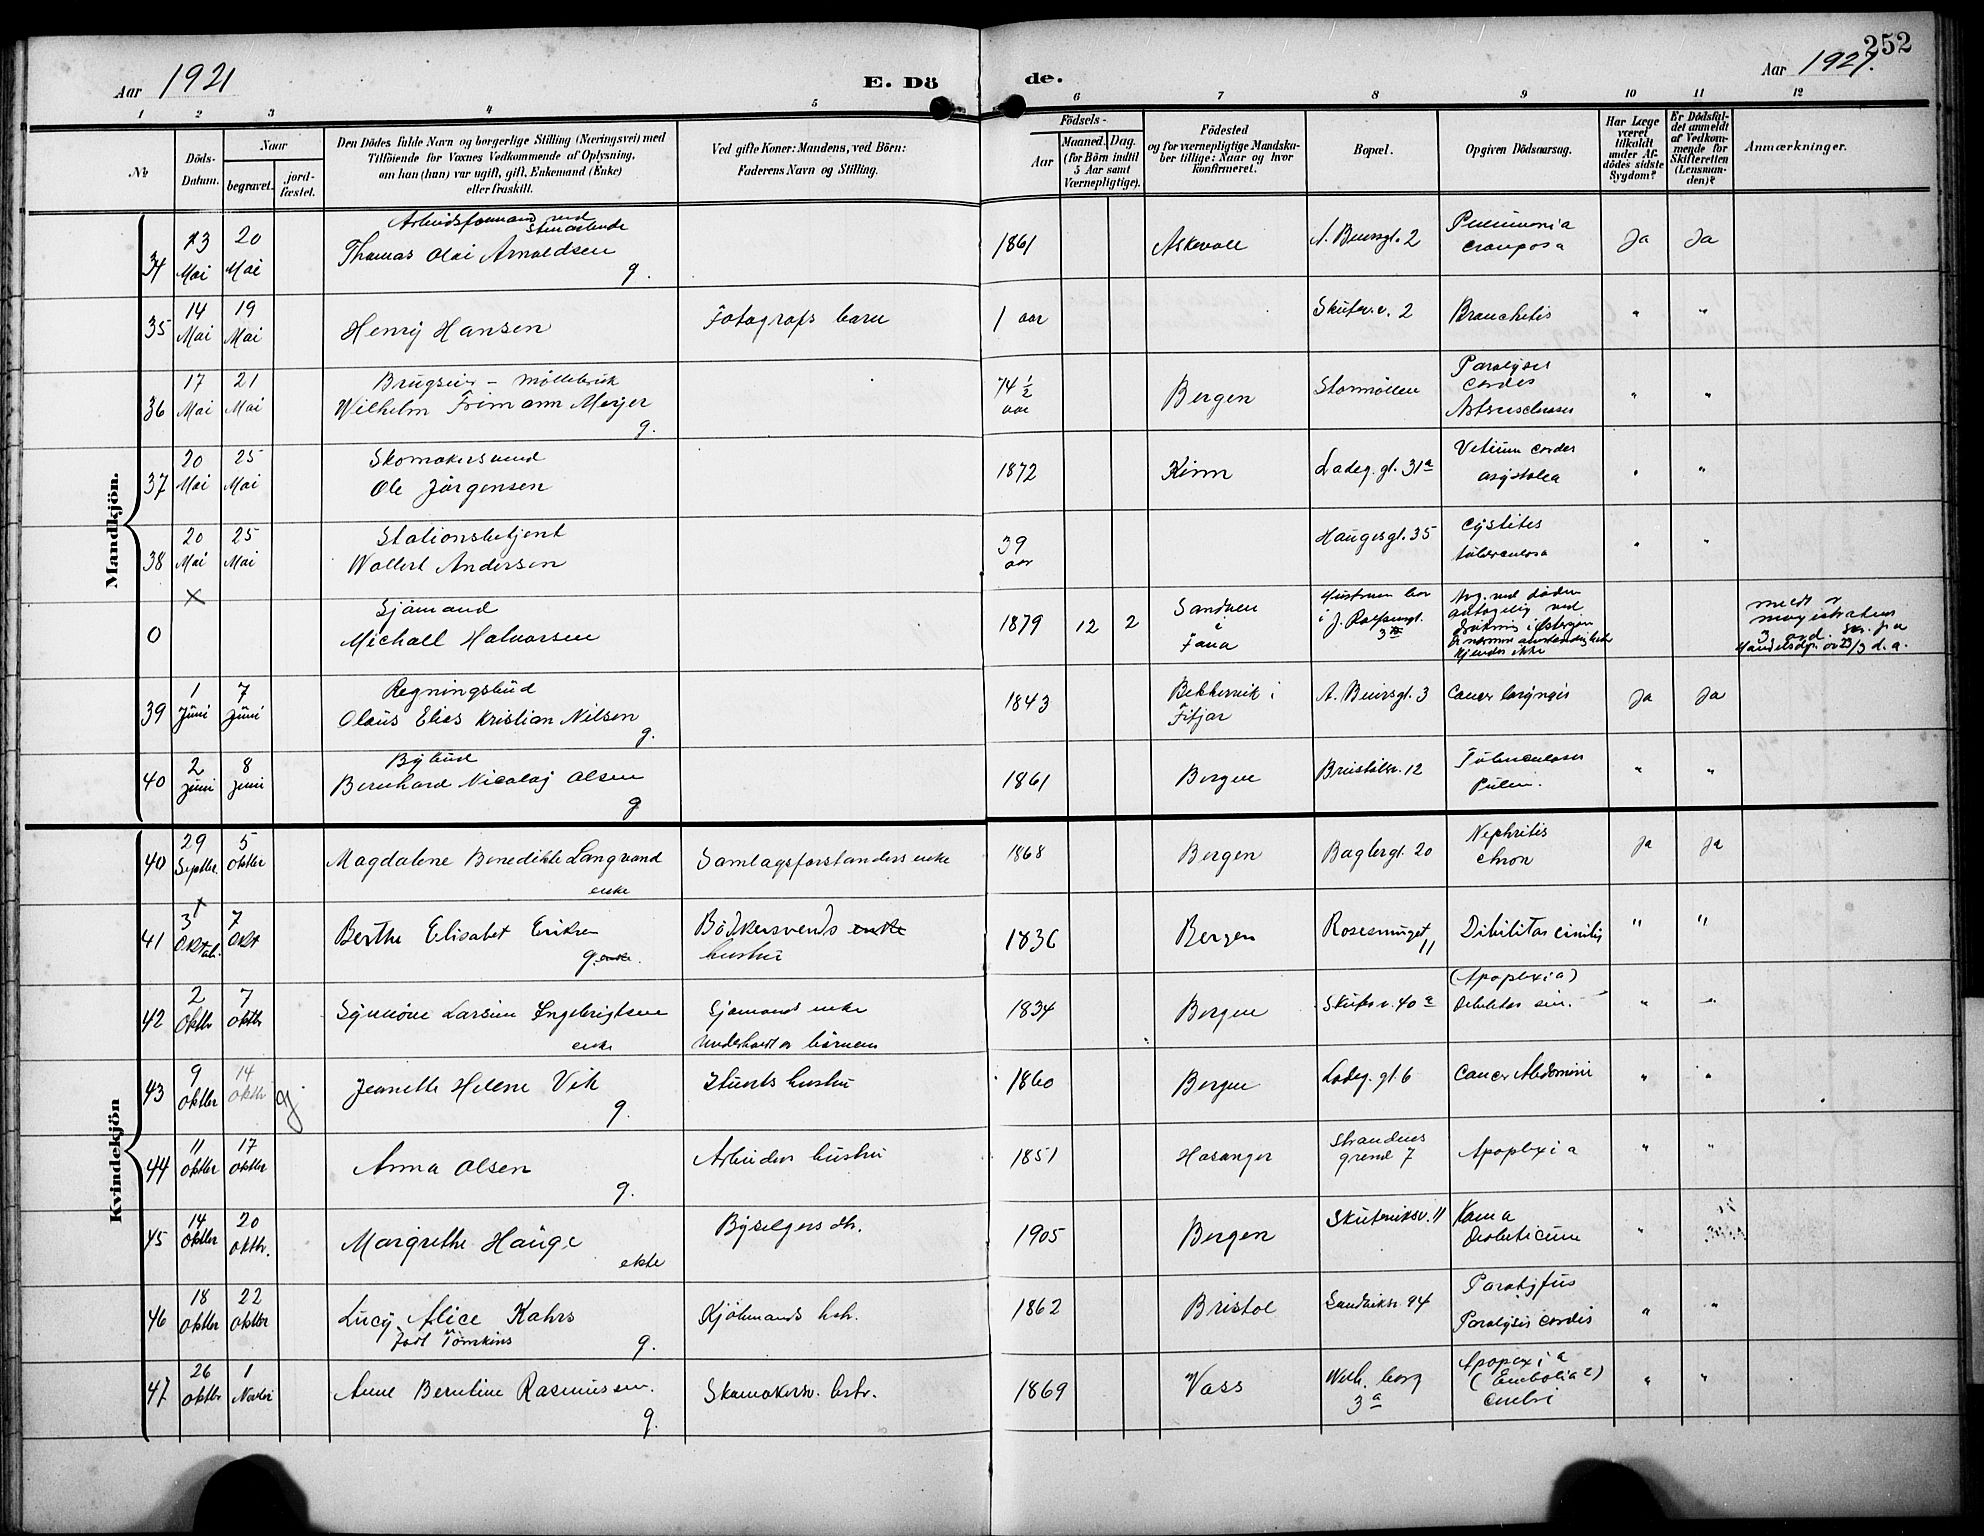 252
Aar 1921
E. Dö
de.
Aar 1921.
1 2 3 4 5 6 7 8 9 10 11 12
No
Döds-
Datum.
Naar
begravet.
jord-
fæstet.
Den Dödes fulde Navn og borgerlige Stilling (Næringsvei) med
Tilföiende for Voxnes Vedkommende af Oplysning,
om han (hun) var ugift, gift, Enkemand (Enke)
eller fraskilt.
Ved gifte Koner: Mandens, ved Börn:
Faderens Navn og Stilling.
Födsels-
Aar
Maaned. Dag.
(for Börn indtil
5 Aar samt
Værnepligtige).
Födested
og for værnepligtige Mandska-
ber tillige: Naar og hvor
konfirmeret.
Bopæl.
Opgiven Dödsaarsag.
Har Læge
været
tilkaldt
under Af-
dödes sidste
Sygdom?
Er Dödsfal-
det anmeldt
af Vedkom-
mende for
Skifteretten
(Lensman-
den)?
Anmærkninger.
Mandkjön.
34 13 Mai 20 Mai
Arbeidsformand ved
Thomas Olai Arnoldsen
g.
1861 Askevoll 2 Pneumonia
crouposa Ja Ja
35 14 Mai 19 Mai Henry Hansen Fotografs barn 1 aar Skutev.v. 2 Bronchitis " "
36 17 Mai 21 Mai
Brugseier - Møllebruk
Wilhelm Frimann Meyer
g.
74 1/2 aar Bergen Stormøllen Paralysis
cordis " "
37 20 Mai 25 Mai
Skomakersvend
Ole Jørgensen
1872 Kinn Ladeg. gt. 31a Vitium cordis
asystolea " "
38 20 Mai 25 Mai
Stationsbetjent
Wollert Andersen
39 aar Haugesgt. 35 Cystites
tuberculosa " "
0 x
Sjømand
Michall Halvorsen
1879 12 2 Sandven
i
Fana
Hustruen bor
i J.
Ang. ved døden
antagelig ved
kjendes ikke
39 1 Juni 7 Juni
Regningsbud
Olaus Elias Kristian Nilsen
g.
1843 i
Fitjar 3 Cancer laryngis Ja Ja
40 2 Juni 8 Juni
Bybud
Bernhard Nicolay Olsen
g
1861 Bergen 12 Tuberculoses
Pulm. " "
Kvindekjön
40 29 Septbr. 5 Oktbr Magdalene Benedikte Langvand
enke
Samlagsforstanders enke 1868 Bergen Baglergt. 20 Nephritis
chron Ja Ja
41 3 7 Okt Berthe Elisabet Eriksen
g. enke.
Bødkersvends enke
hustru
1836 Bergen 11 " "
42 2 Oktbr 7 Oktbr Larsine Engebrigtsen
enke
Sjømands enke
1834 Bergen Skutev.v. 40a (Apoplexia)
Debilitas sen. " "
43 9 Oktbr 14 Oktbr Jeanette Helene Vik
g.
hustru 1860 Bergen Ladeg. gt. 6 Cancer Abdomini " "
44 11 Oktbr 17 Oktbr Anna Olsen
g.
Arbeiders hustru 1851 Hosanger Strandens
grend 7 Apoplexia " "
45 14 Oktbr 20 Oktbr. Margrethe Hauge
ekte
Byselgers dtr. 1905 Bergen Skuteviksv. 11 Koma
Diabeticum "
46 18 Oktbr 22 Oktbr Lucy Alice Kahrs
født Tomkins
g.
Kjøbmands hstr. 1862 Bristol Sandviksv. 94 Paratyfus
Paralysis cordis " "
47 26 Oktbr 1 Novbr Anne Berntine Rasmussen.
g.
Skomakersv. hstr. 1869 Voss 3a Apoplexia
(Embolia?)
cerebri " "